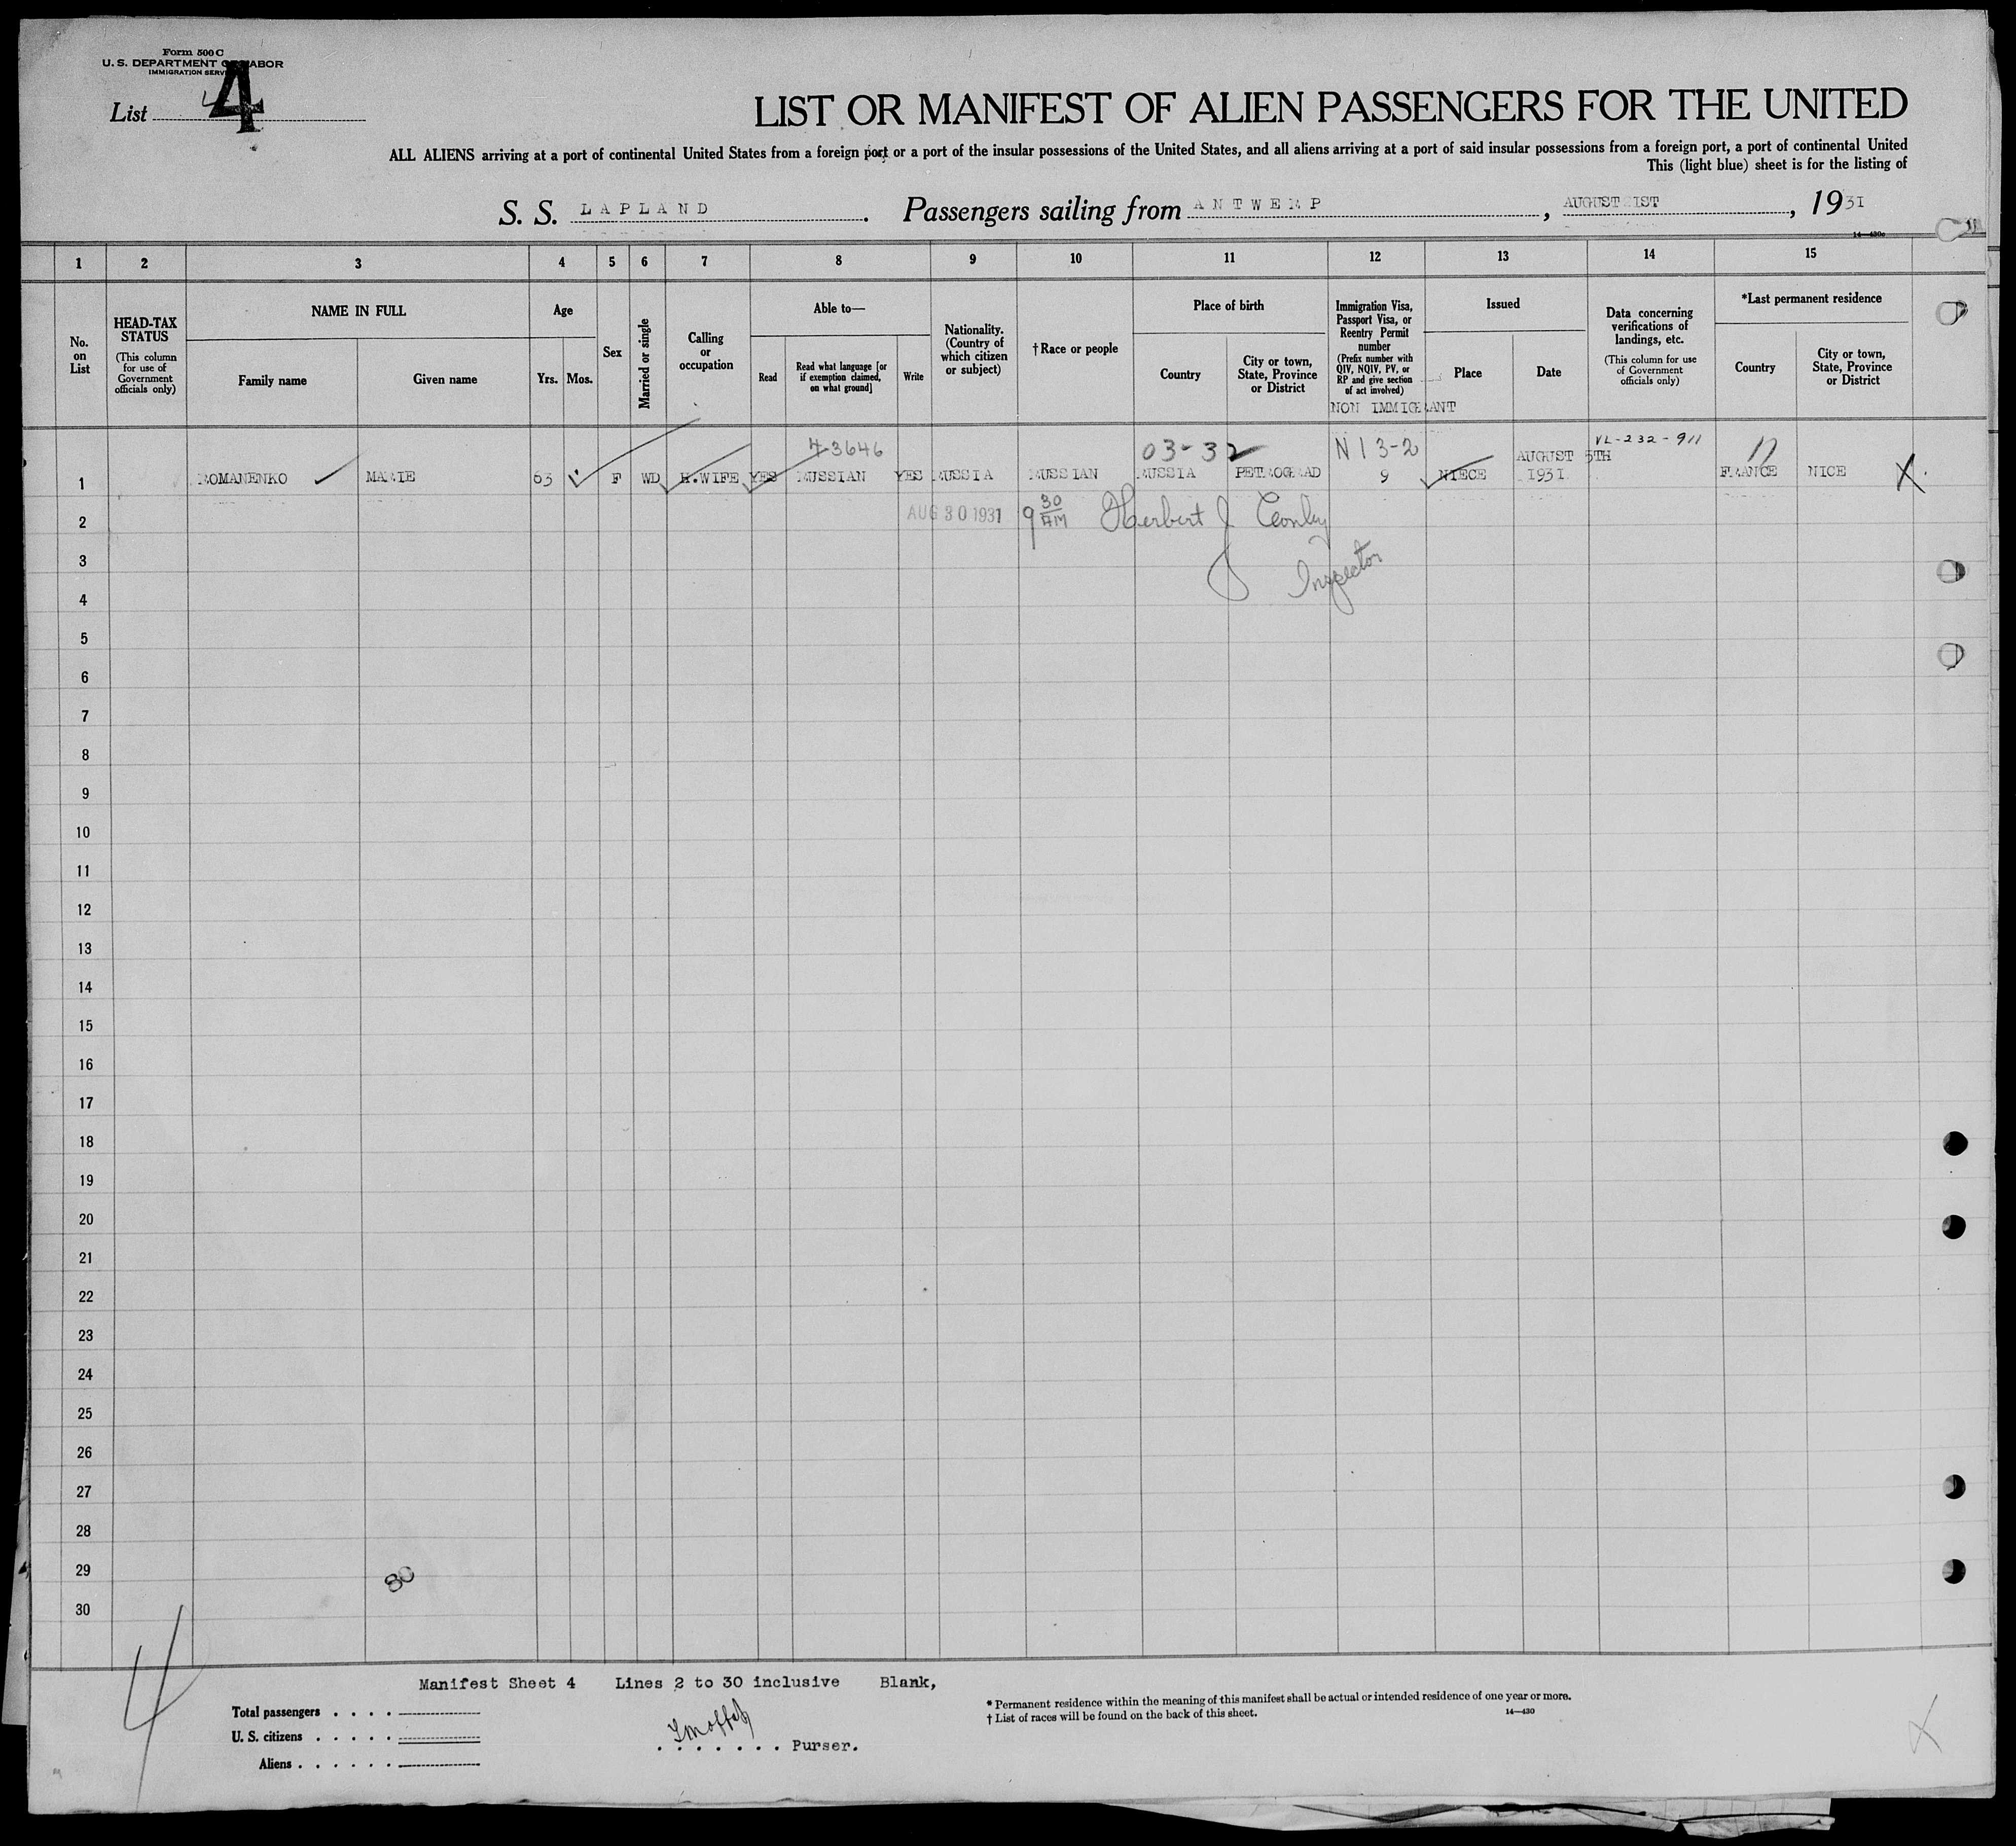 Form 500 C
U. S. DEPARTMENT OF LABOR
IMMIGRATION SERVICE
List 4
LIST OR MANIFEST OF ALIEN PASSENGERS FOR THE UNITED
ALL ALIENS arriving at a port of continental United States from a foreign port or a port of the insular possessions of the United States, and all aliens arriving at a port of said insular possessions from a foreign port, a port of continental United
This (light blue) sheet is for the listing of
S. S. LAPLAND. Passengers sailing from ANTWERP, AUGUST 21ST, 1931
14—430c
1 2 3 4 5 6 7 8 9 10 11 12 13 14 15
No. on List
HEAD-TAX STATUS
(This column for use of Government officials only)
NAME IN FULL
Family name
Given name
Age
Yrs. Mos.
Sex
Married or single
Calling or occupation
Able to—
Read
Read what language [or if exemption claimed, on what ground]
Write
Nationality. (Country of which citizen or subject)
† Race or people
Place of birth
Country
City or town, State, Province or District
Immigration Visa, Passport Visa, or Reentry Permit number
(Prefix number with QIV, NQIV, PV, or RP and give section of act involved)
NON IMMIGRANT
Issued
Place
Date
Data concerning verifications of landings, etc.
(This column for use of Government officials only)
*Last permanent residence
Country
City or town, State, Province or District
4-3646 03-32 N I 3-2 VL-232-911
AUGUST 5TH
1 ROMANENKO MARIE 63 F WD H.WIFE YES RUSSIAN YES RUSSIA RUSSIAN RUSSIA PETROGRAD 9 NIECE 1931 FRANCE NICE X
2 AUG 30 1931 9 30 AM Herbert J Conley
3 Inspector
4
5
6
7
8
9
10
11
12
13
14
15
16
17
18
19
20
21
22
23
24
25
26
27
28
29 30
30
4
Manifest Sheet 4 Lines 2 to 30 inclusive Blank,
Total passengers
U. S. citizens
Aliens
Purser.
* Permanent residence within the meaning of this manifest shall be actual or intended residence of one year or more.
† List of races will be found on the back of this sheet.
14—430
X